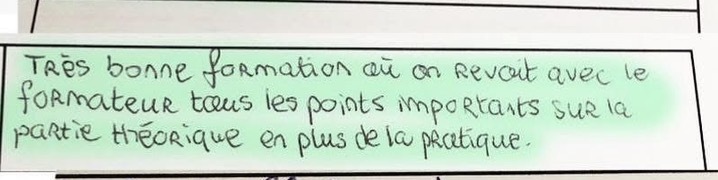 TRès bonne formation où on Revoit avec le
formateur tous les points importants sur la
partie théorique en plus de la pratique.